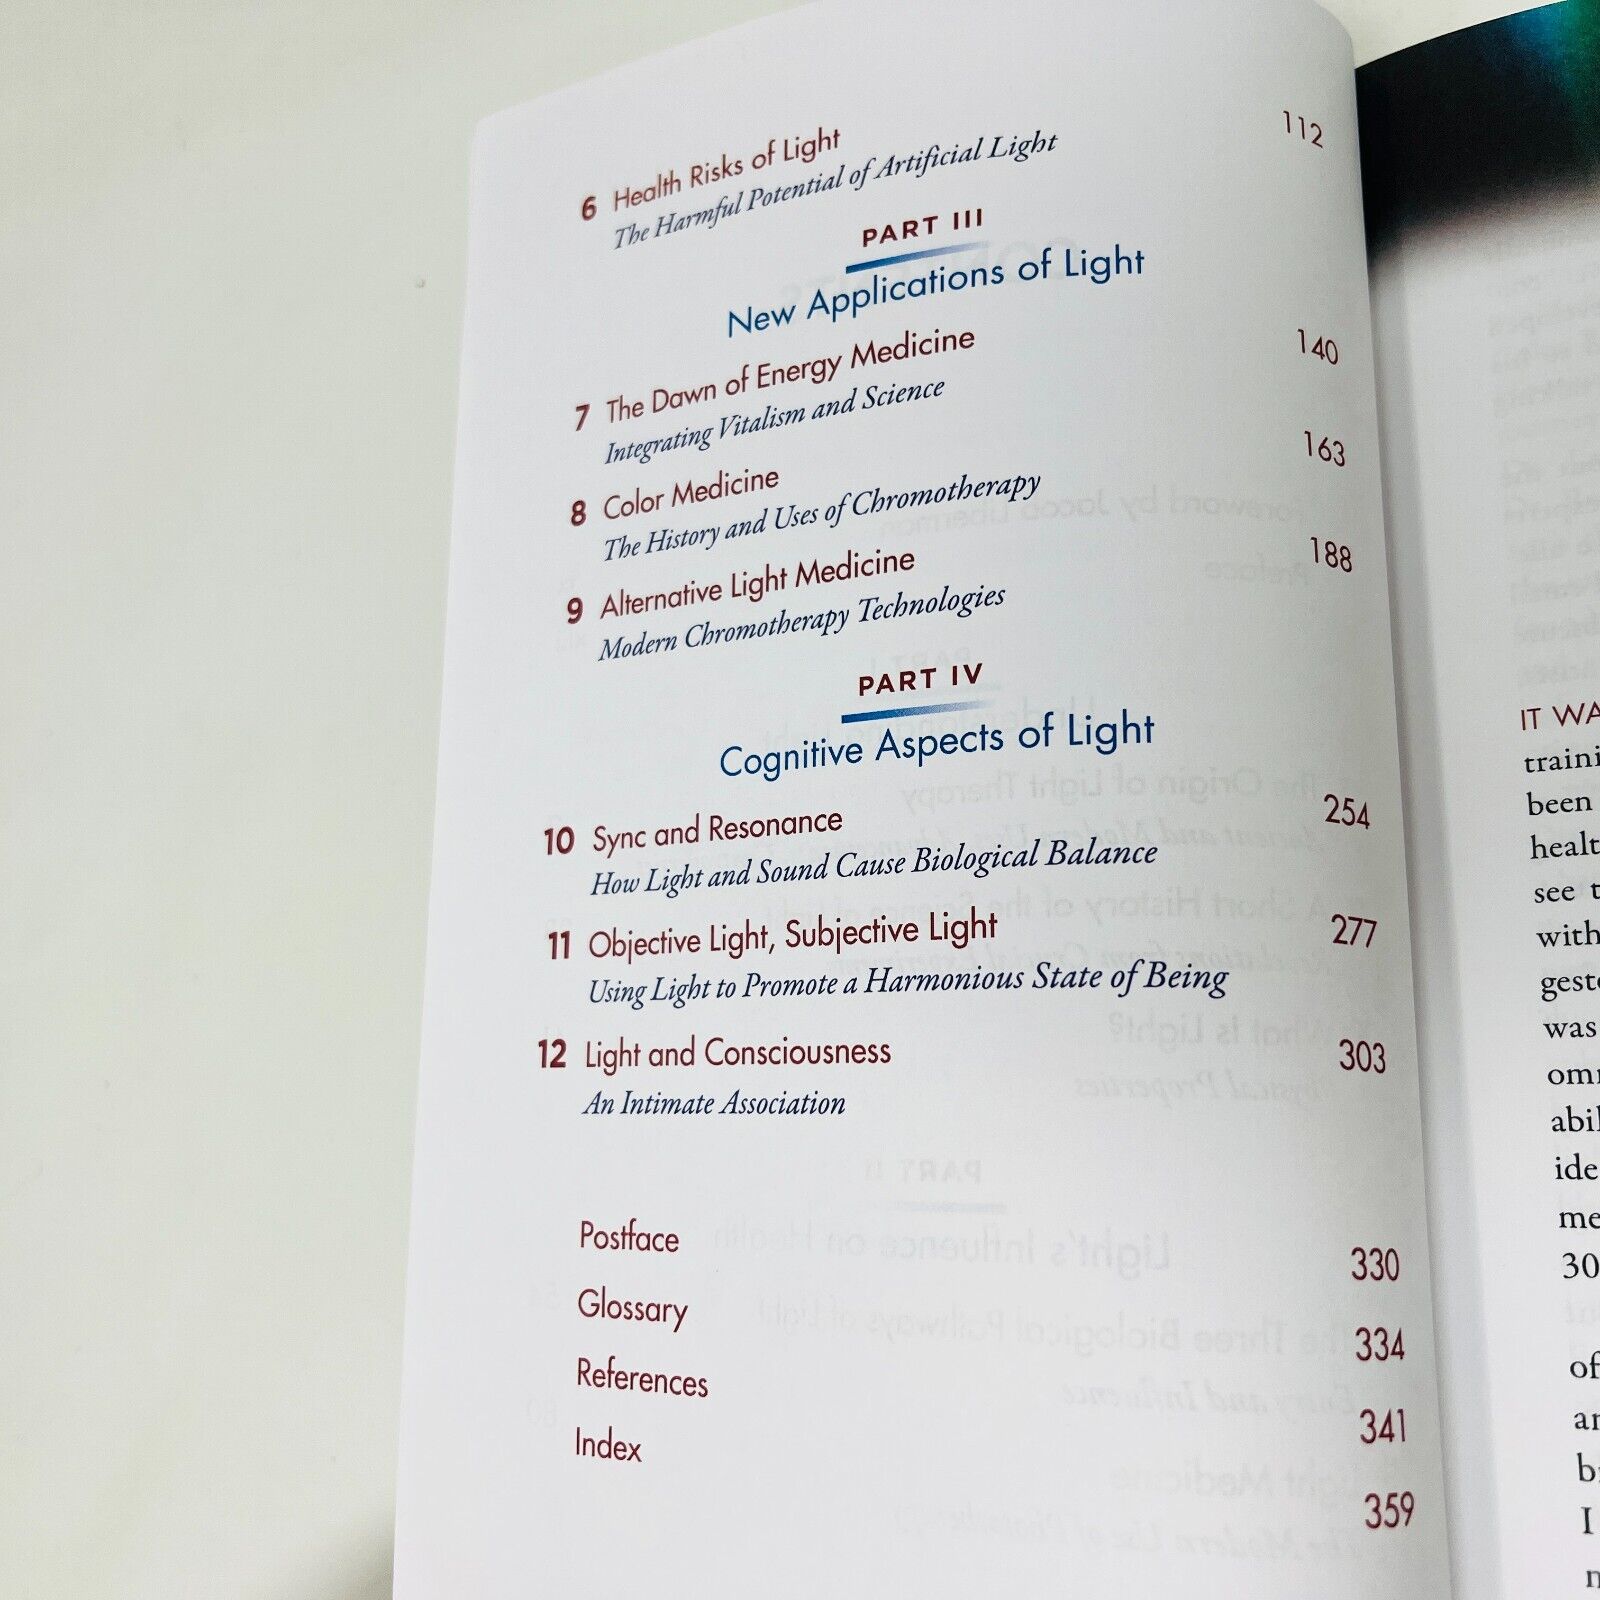 6 Health Risks of Light 112
The Harmful Potential of Artificial Light
PART III
New Applications of Light
7 The Dawn of Energy Medicine 140
Integrating Vitalism and Science
8 Color Medicine 163
The History and Uses of Chromotherapy
9 Alternative Light Medicine 188
Modern Chromotherapy Technologies
PART IV
Cognitive Aspects of Light
10 Sync and Resonance 254
How Light and Sound Cause Biological Balance
11 Objective Light, Subjective Light 277
Using Light to Promote a Harmonious State of Being
12 Light and Consciousness 303
An Intimate Association
Postface 330
Glossary 334
References 341
Index 359
IT
been
see
with
was
30
of
I